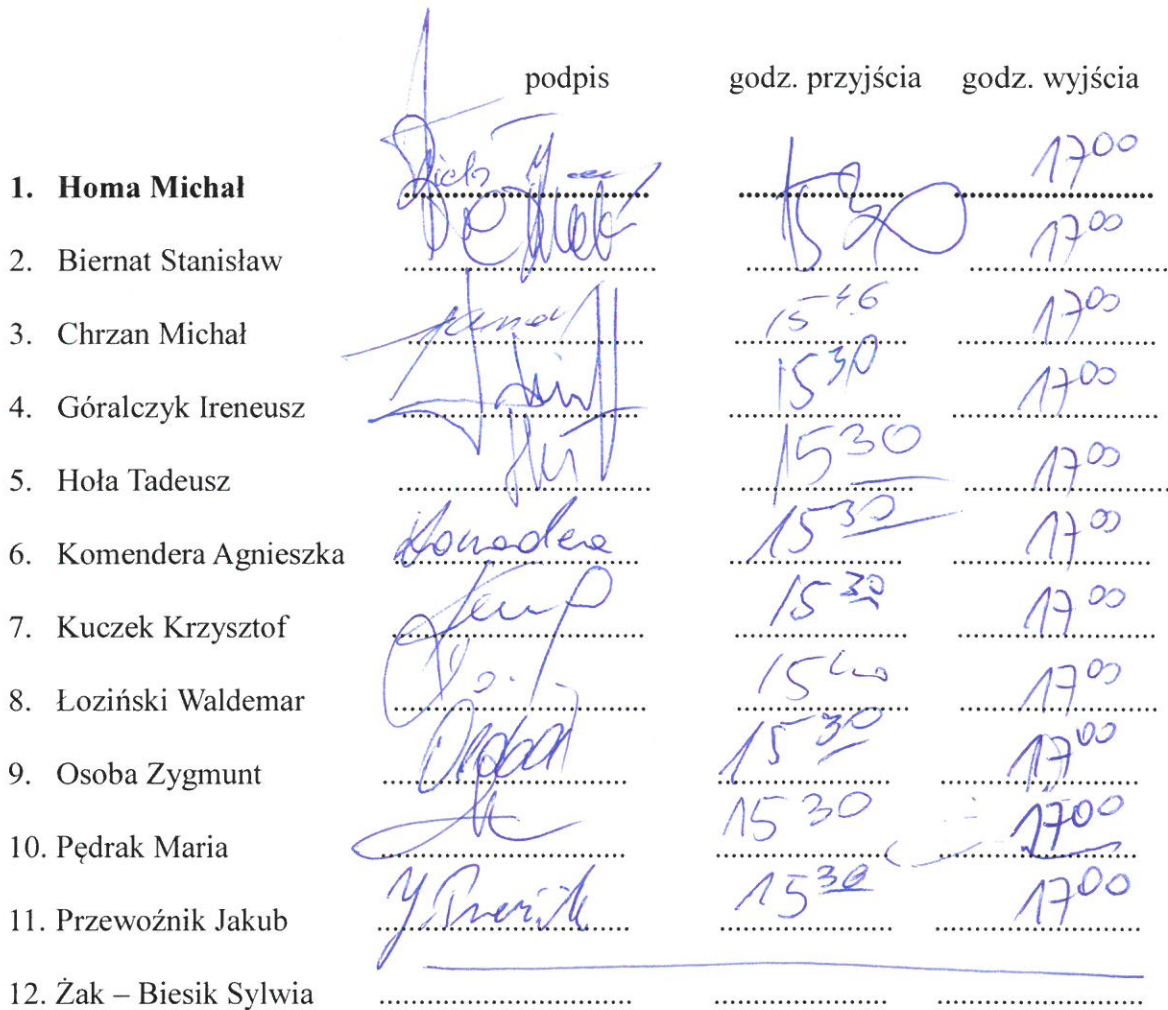 podpis godz. przyjścia godz. wyjścia
1. Homa Michał 17 00
2. Biernat Stanisław 15 30 17 00
3. Chrzan Michał 15 46 17 00
4. Góralczyk Ireneusz 15 30 17 00
5. Hoła Tadeusz 15 30 17 00
6. Komendera Agnieszka 15 30 17 00
7. Kuczek Krzysztof 15 30 17 00
8. Łoziński Waldemar 15 40 17 00
9. Osoba Zygmunt 15 30 17 00
10. Pędrak Maria 15 30 17 00
11. Przewoźnik Jakub 15 30 17 00
12. Żak – Biesik Sylwia